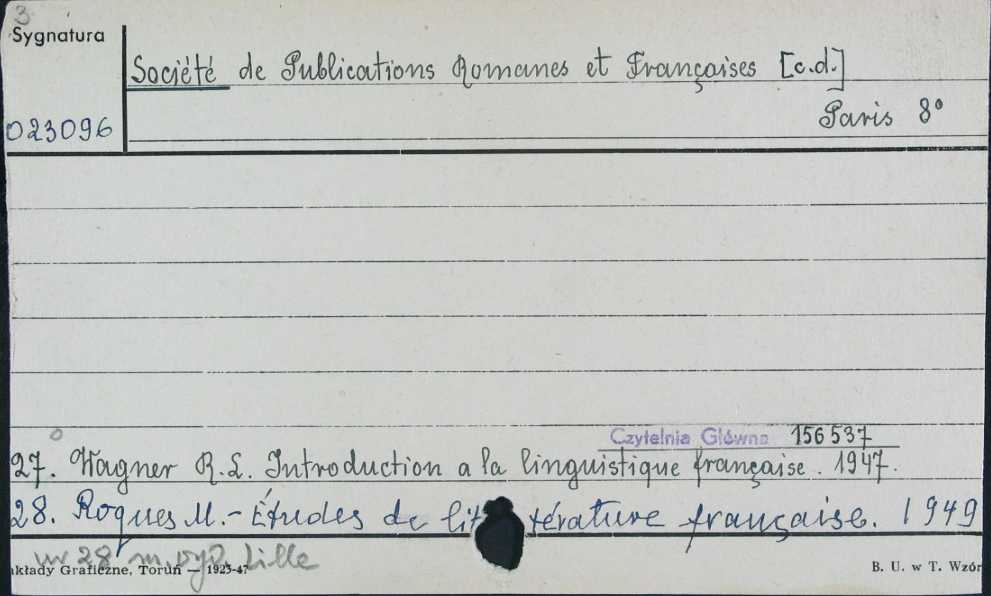 3
Sygnatura
Société de Publications Romanes et Françaises [c.d.]
023096
Paris 8°
Czytelnia Główna 156 537
27. Wagner R.L. Introduction a la linguistique française. 1947.
28. Roques M.- Études de lit térature française. 1949
nr 28 m. wyd. Lille
kłady Graficzne, Toruń — 1923-47
B. U. w T. Wzór